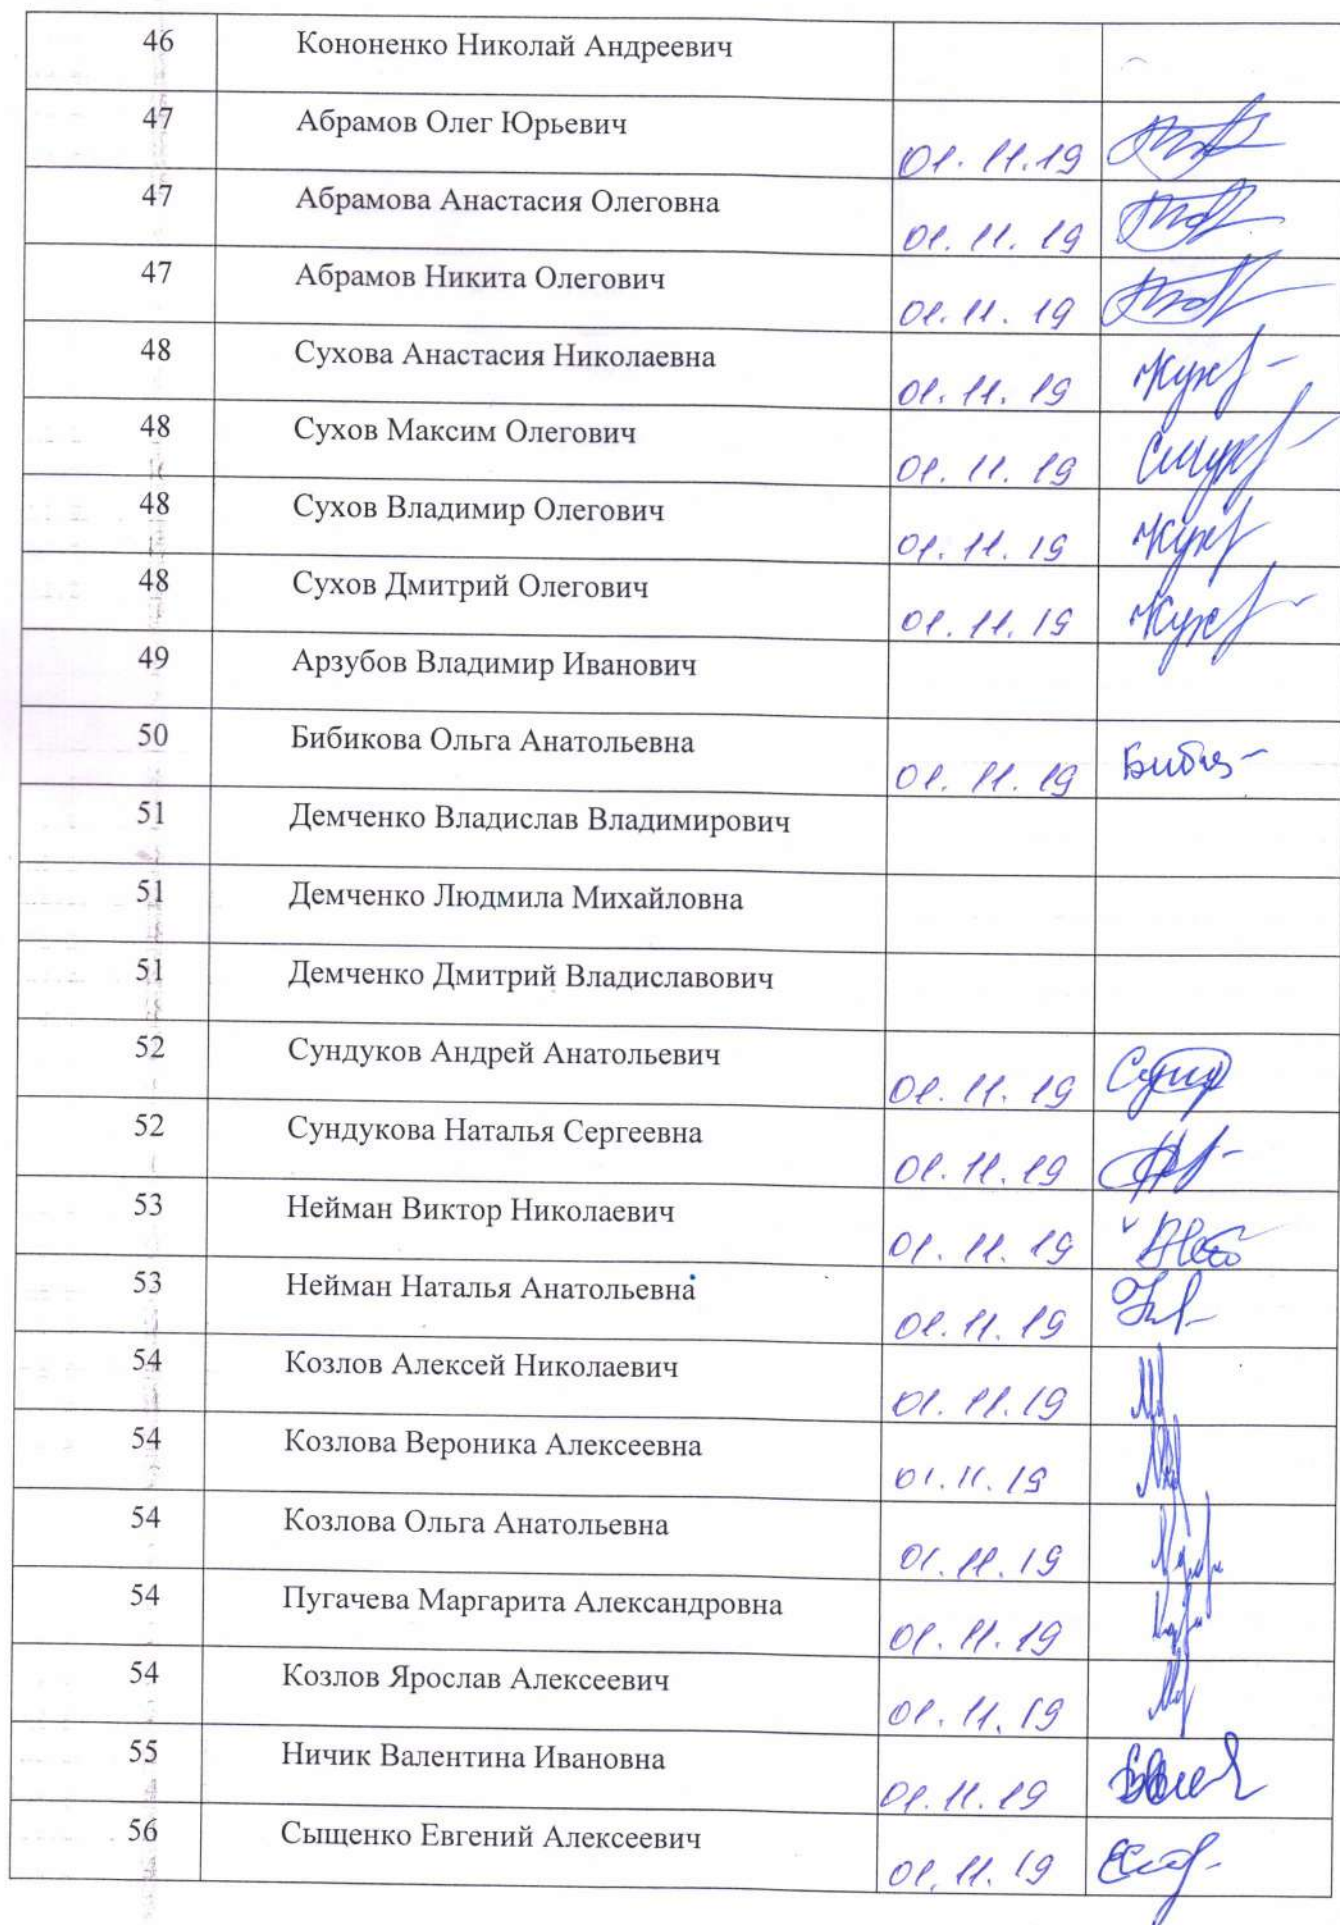 46 Кононенко Николай Андреевич
47 Абрамов Олег Юрьевич 01.11.19
47 Абрамова Анастасия Олеговна 01.11.19
47 Абрамов Никита Олегович 01.11.19
48 Сухова Анастасия Николаевна 01.11.19
48 Сухов Максим Олегович 01.11.19
48 Сухов Владимир Олегович 01.11.19
48 Сухов Дмитрий Олегович 01.11.19
49 Арзубов Владимир Иванович
50 Бибикова Ольга Анатольевна 01.11.19
51 Демченко Владислав Владимирович
51 Демченко Людмила Михайловна
51 Демченко Дмитрий Владиславович
52 Сундуков Андрей Анатольевич 01.11.19
52 Сундукова Наталья Сергеевна 01.11.19
53 Нейман Виктор Николаевич 01.11.19
53 Нейман Наталья Анатольевна 01.11.19
54 Козлов Алексей Николаевич 01.11.19
54 Козлова Вероника Алексеевна 01.11.19
54 Козлова Ольга Анатольевна 01.11.19
54 Пугачева Маргарита Александровна 01.11.19
54 Козлов Ярослав Алексеевич 01.11.19
55 Ничик Валентина Ивановна 01.11.19
56 Сыщенко Евгений Алексеевич 01.11.19